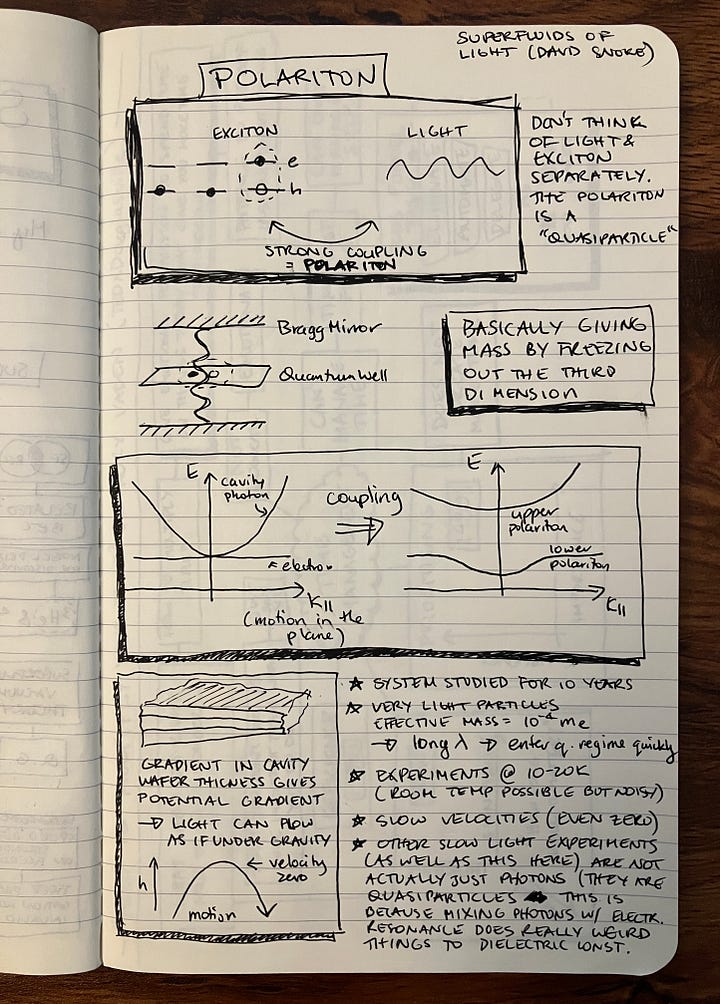 SUPERFLUIDS OF
LIGHT (DAVID SNOKE)
POLARITON
EXCITON
LIGHT
e
h
STRONG COUPLING
= POLARITON
DON'T THINK
OF LIGHT &
EXCITON
SEPARATELY.
THE POLARITON
IS A
"QUASIPARTICLE"
Bragg Mirror
Quantum Well
BASICALLY GIVING
MASS BY FREEZING
OUT THE THIRD
DIMENSION
E
cavity
photon
electron
K||
(motion in the
plane)
coupling
E
upper
polariton
lower
polariton
K||
GRADIENT IN CAVITY
WAFER THICNESS GIVES
POTENTIAL GRADIENT
→ LIGHT CAN FLOW
AS IF UNDER GRAVITY
h
← velocity
zero
motion
★ SYSTEM STUDIED FOR 10 YEARS
★ VERY LIGHT PARTICLES
EFFECTIVE MASS = 10⁻⁴ me
→ long λ → enter q. regime quickly
★ EXPERIMENTS @ 10-20K
(ROOM TEMP POSSIBLE BUT NOISY)
★ SLOW VELOCITIES (EVEN ZERO)
★ OTHER SLOW LIGHT EXPERIMENTS
(AS WELL AS THIS HERE) ARE NOT
ACTUALLY JUST PHOTONS (THEY ARE
QUASIPARTICLES THIS IS
BECAUSE MIXING PHOTONS W/ ELECTR.
RESONANCE DOES REALLY WEIRD
THINGS TO DIELECTRIC CONST.